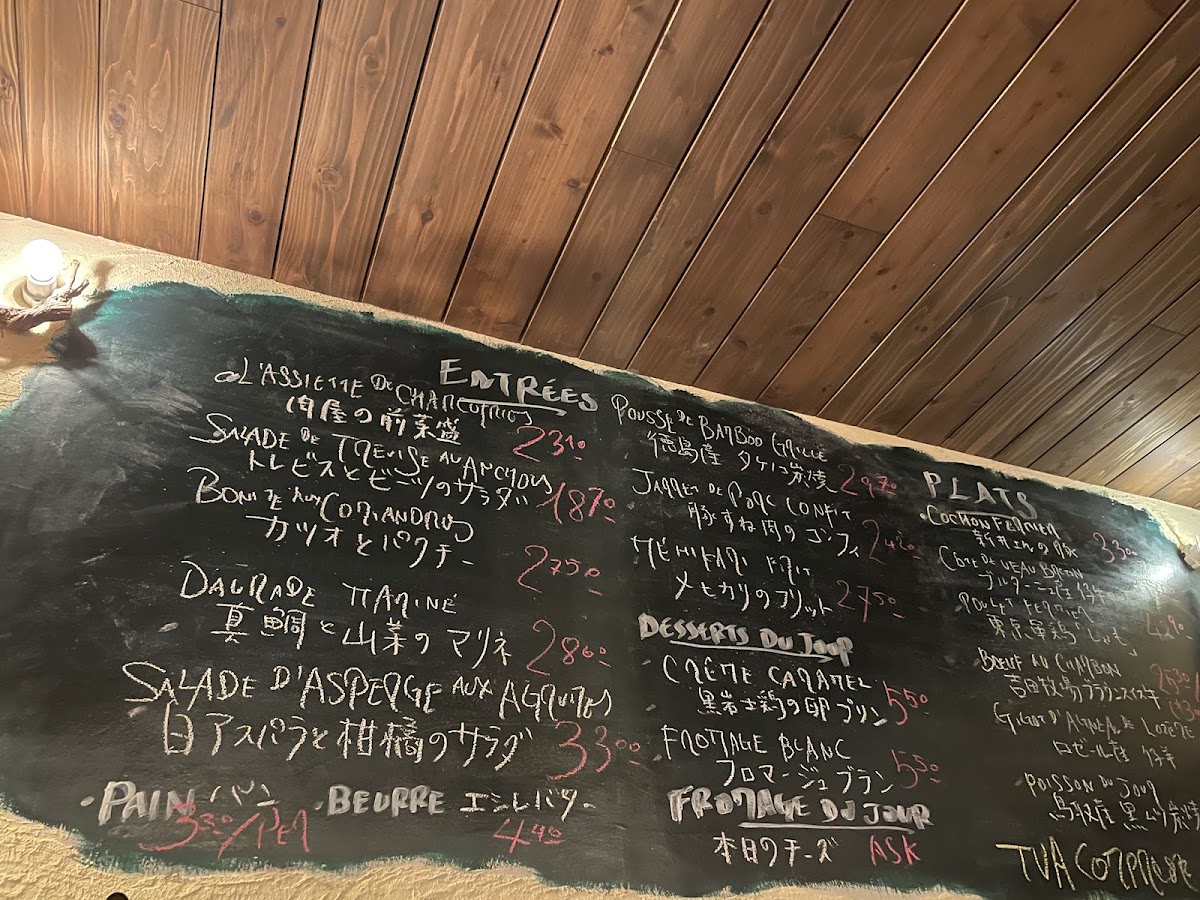 ENTRÉES
L'ASSIETTE DE CHARCUTRIES
肉屋の前菜盛 2310
SALADE DE TREVISE AU ANCHOIS
トレビスとビーツのサラダ 1870
BONITE AUX CORIANDRES
カツオとパクチー 2750
DAURADE MARINÉ
真鯛と山菜のマリネ 2860
SALADE D'ASPERGE AUX AGRUMES
白アスパラと柑橘のサラダ 3300
・PAIN パン
330/PER
・BEURRE エシレバター
440
POUSSE DE BAMBOO GRILLE
徳島産 タケノコ炭焼 2970
JARRET DE PORC CONFIT
豚すね肉のコンフィ 2420
MÉHIKARI FRIT
メヒカリのフリット 2750
DESSERTS DU JOUR
CRÈME CARAMEL
黒富士鶏の卵プリン 550
FROMAGE BLANC
フロマージュブラン 550
FROMAGE DU JOUR
本日のチーズ ASK
PLATS
・COCHON FERMIER
新井さんの豚 3300
COTE DE VEAU BRETON
ブルターニュ産 仔牛
POULET FERMIER
東京軍鶏 4290
BŒUF AU CHARBON
吉田牧場ブラウンスイス牛
GIGOT D'AGNEAU DE LOZERE
ロゼール産 仔羊
POISSON DU JOUR
鳥取産 黒ムツ炭焼
TVA COMPRISE